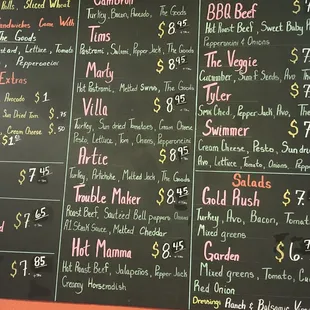 Rolls, Sliced Wheat
Sandwiches Come With
The Goods
Mustard, Lettuce, Tomato
Pepperoncini
Extras
Avocado $1
Sun Dried Tom .75
Cream Cheese .50
$1
$7.45
$7.65
$7.85
Cameron
Turkey, Bacon, Avocado, The Goods
Tims $8.95
Pastrami, Salami, Pepper Jack, The Goods
Marty $8.95
Hot Pastrami, Melted Swiss, The Goods
Villa $8.95
Turkey, Sun dried Tomatoes, Cream Cheese
Pesto, Lettuce, Tom, Onions, Pepperoncini
Artie $8.95
Turkey, Artichoke, Melted Jack, The Goods
Trouble Maker $8.45
Roast Beef, Sauteed Bell peppers Onions
A1 Steak Sauce, Melted Cheddar
Hot Mamma $8.45
Hot Roast Beef, Jalapeños, Pepper Jack
Creamy Horseradish
BBQ Beef $7
Hot Roast Beef, Sweet Baby
Pepperoncini & Onions
The Veggie $7
Cucumber, Sun F Seeds, Avo
Tyler $7
Smk Ched, Pepper Jack, Avo, The
Swimmer $7
Cream Cheese, Pesto, Sun dried
Avo, Lettuce, Tomato, Onions, Pepper
Salads
Gold Rush $7
Turkey, Avo, Bacon, Tomato
Mixed greens
Garden $6
Mixed greens, Tomato, Cu
Red Onion
Dressings Ranch & Balsamic